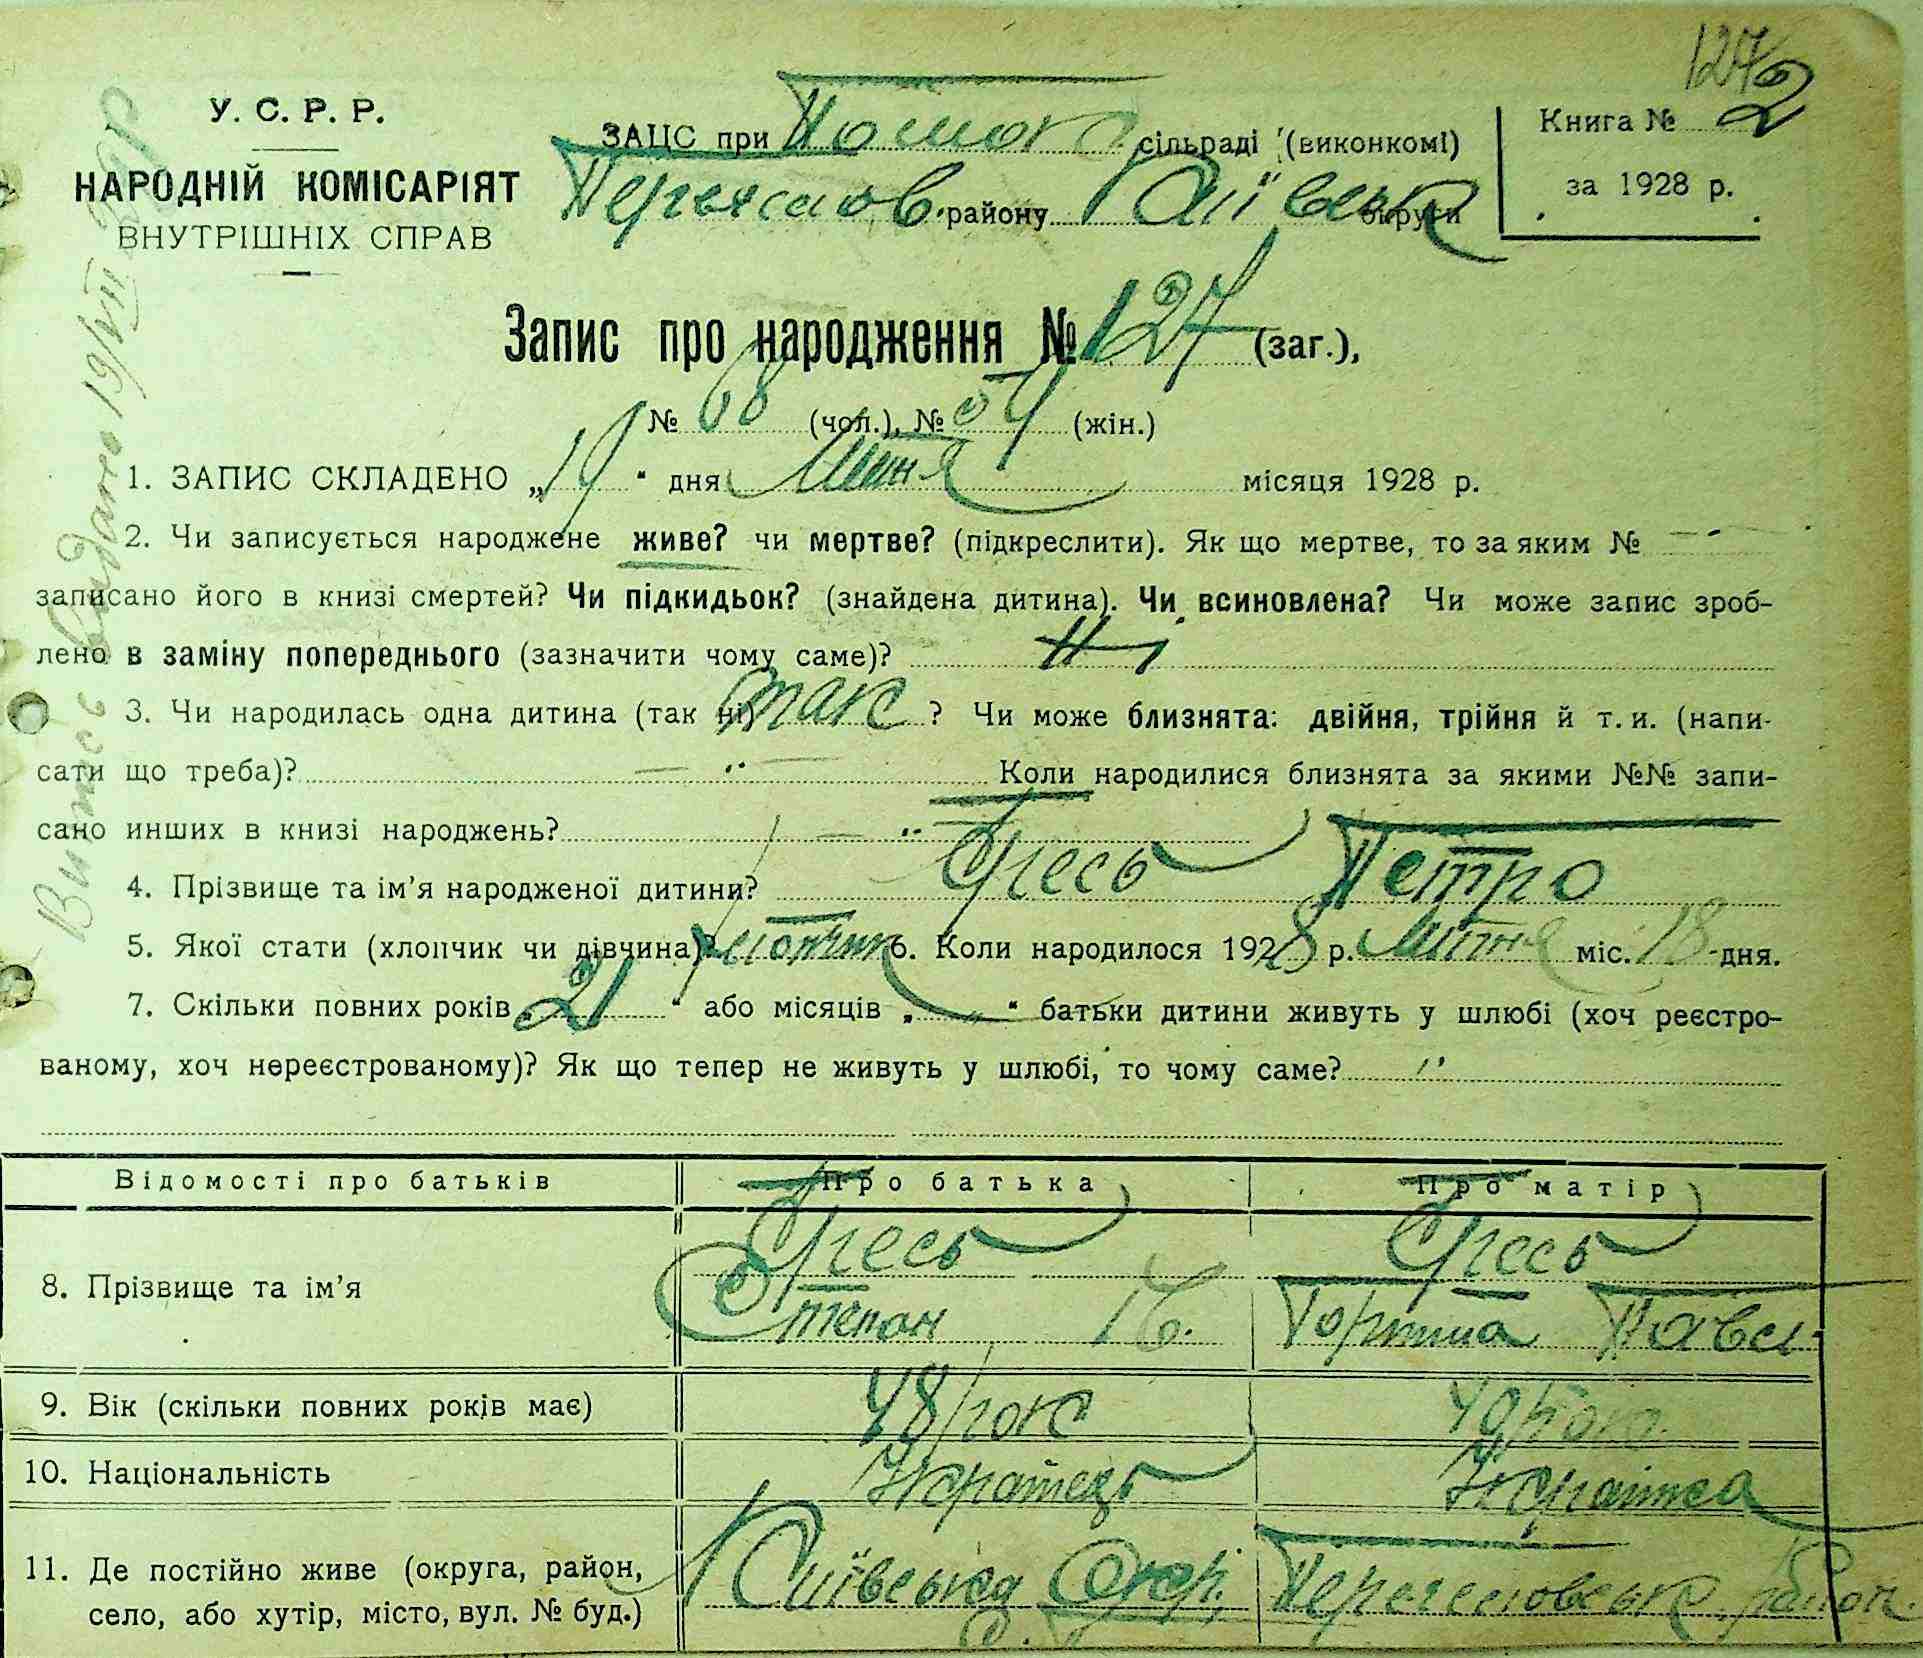 127
У. С. Р. Р.
НАРОДНІЙ КОМІСАРІЯТ
ВНУТРІШНІХ СПРАВ
ЗАЦС при Помок сільраді (виконкомі)
району Київськ округи
Книга № 2
за 1928 р.
Запис про народження № 127 (заг.),
№ 68 (чол.), № 59 (жін.)
1. ЗАПИС СКЛАДЕНО „19" дня Липня місяця 1928 р.
2. Чи записується народжене живе? чи мертве? (підкреслити). Як що мертве, то за яким № —"
записано його в книзі смертей? Чи підкидьок? (знайдена дитина). Чи всиновлена? Чи може запис зроб-
лено в заміну попереднього (зазначити чому саме)? Ні
3. Чи народилась одна дитина (так ні) так ? Чи може близнята: двійня, трійня й т. и. (напи-
сати що треба)? — " — Коли народилися близнята за якими №№ запи-
сано инших в книзі народжень? — " —
4. Прізвище та ім'я народженої дитини? Гресь Петро
5. Якої стати (хлопчик чи дівчина)? хлопчик 6. Коли народилося 1928 р. Липня міс. 18 дня.
7. Скільки повних років „21" або місяців „ " " батьки дитини живуть у шлюбі (хоч реєстро-
ваному, хоч нереєстрованому)? Як що тепер не живуть у шлюбі, то чому саме? "
Відомості про батьків Про батька Про матір
8. Прізвище та ім'я Гресь Гресь
Степан Горпина Павл.
9. Вік (скільки повних років має) 48 рок 40 рок.
10. Національність Украінець Украінка
11. Де постійно живе (округа, район, Київська Окр.
село, або хутір, місто, вул. № буд.) район.
Витяг видано 19/VII